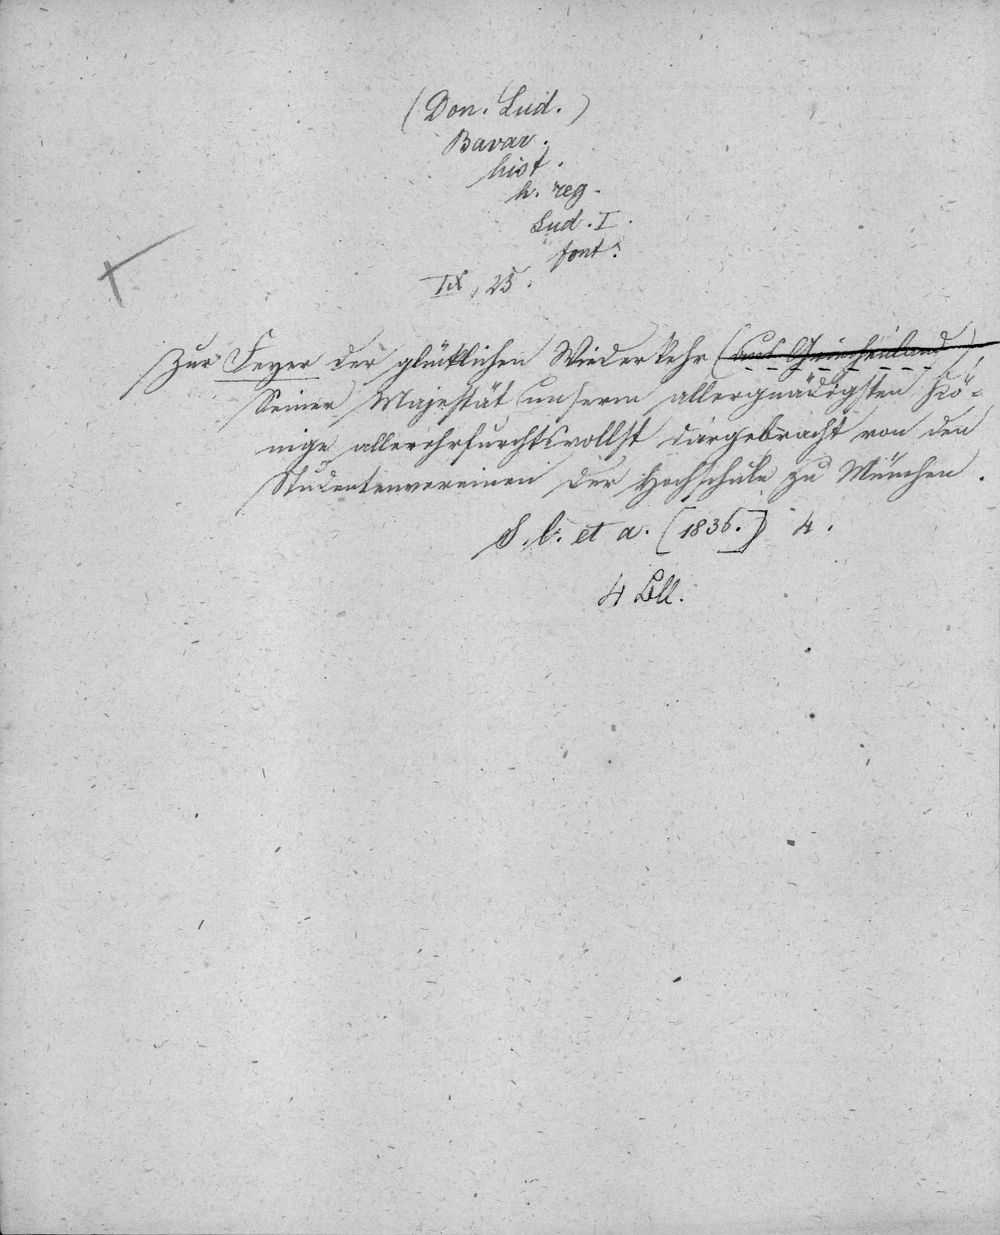 (Don. Lud.)
Bavar.
hist.
h. reg.
Lud. I.
font.
IX, 25.
Zur Feyer der glücklichen Wiederkehr (aus Griechenland),
Seiner Majestät unserm allergnädigsten Kö-
nige allerehrfurchtsvollst dargebracht von den
Studentenvereinen der Hochschule zu München.
S. l. et a. [1836.] 4.
4 Bll.